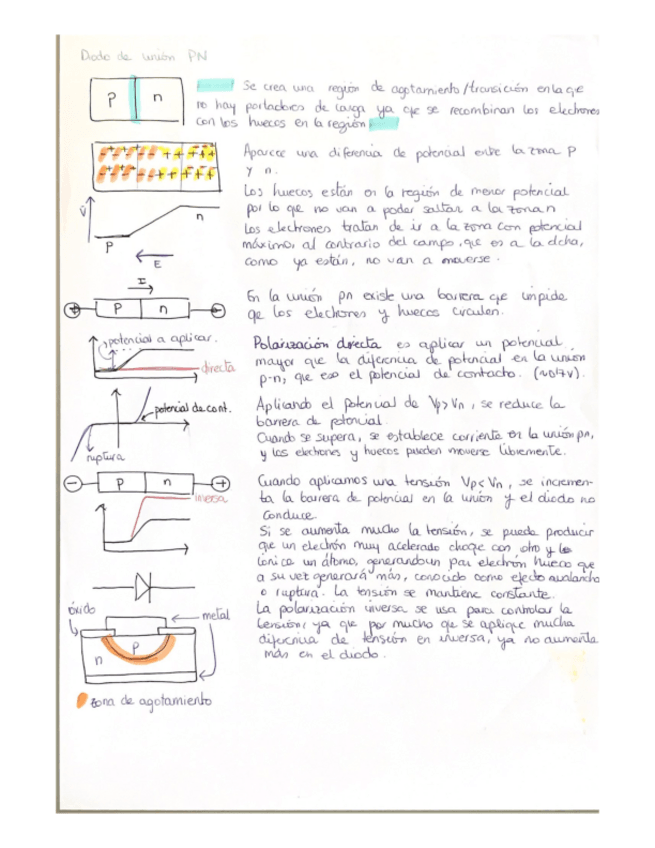 Diodo de unión PN
P n
Se crea una región de agotamiento/transición en la que
no hay portadores de carga ya que se recombinan los electrones
con los huecos en la región
Aparece una diferencia de potencial entre la zona P
y n.
Los huecos están en la región de menor potencial
por lo que no van a poder saltar a la zona n
Los electrones tratan de ir a la zona con potencial
máximo, al contrario del campo, que es a la dcha,
como ya están, no van a moverse.
V
n
P
E
I
+ P n -
En la unión pn existe una barrera que impide
que los electrones y huecos circulen.
potencial a aplicar.
directa
Polarización directa es aplicar un potencial
mayor que la diferencia de potencial en la unión
p-n, que es el potencial de contacto. (~0,7V).
potencial de cont.
ruptura
Aplicando el potencial de Vp>Vn, se reduce la
barrera de potencial.
Cuando se supera, se establece corriente en la unión pn,
y los electrones y huecos pueden moverse libremente.
- P n +
inversa
Cuando aplicamos una tensión Vp<Vn, se incremen-
ta la barrera de potencial en la unión y el diodo no
conduce.
Si se aumenta mucho la tensión, se puede producir
que un electrón muy acelerado choque con otro y lo
ionice un átomo, generando un par electrón hueco que
a su vez generará más, conocido como efecto avalancha
o ruptura. La tensión se mantiene constante.
La polarización inversa se usa para controlar la
tensión, ya que por mucho que se aplique mucha
diferencia de tensión en inversa, ya no aumenta
más en el diodo.
óxido
metal
P
n
zona de agotamiento